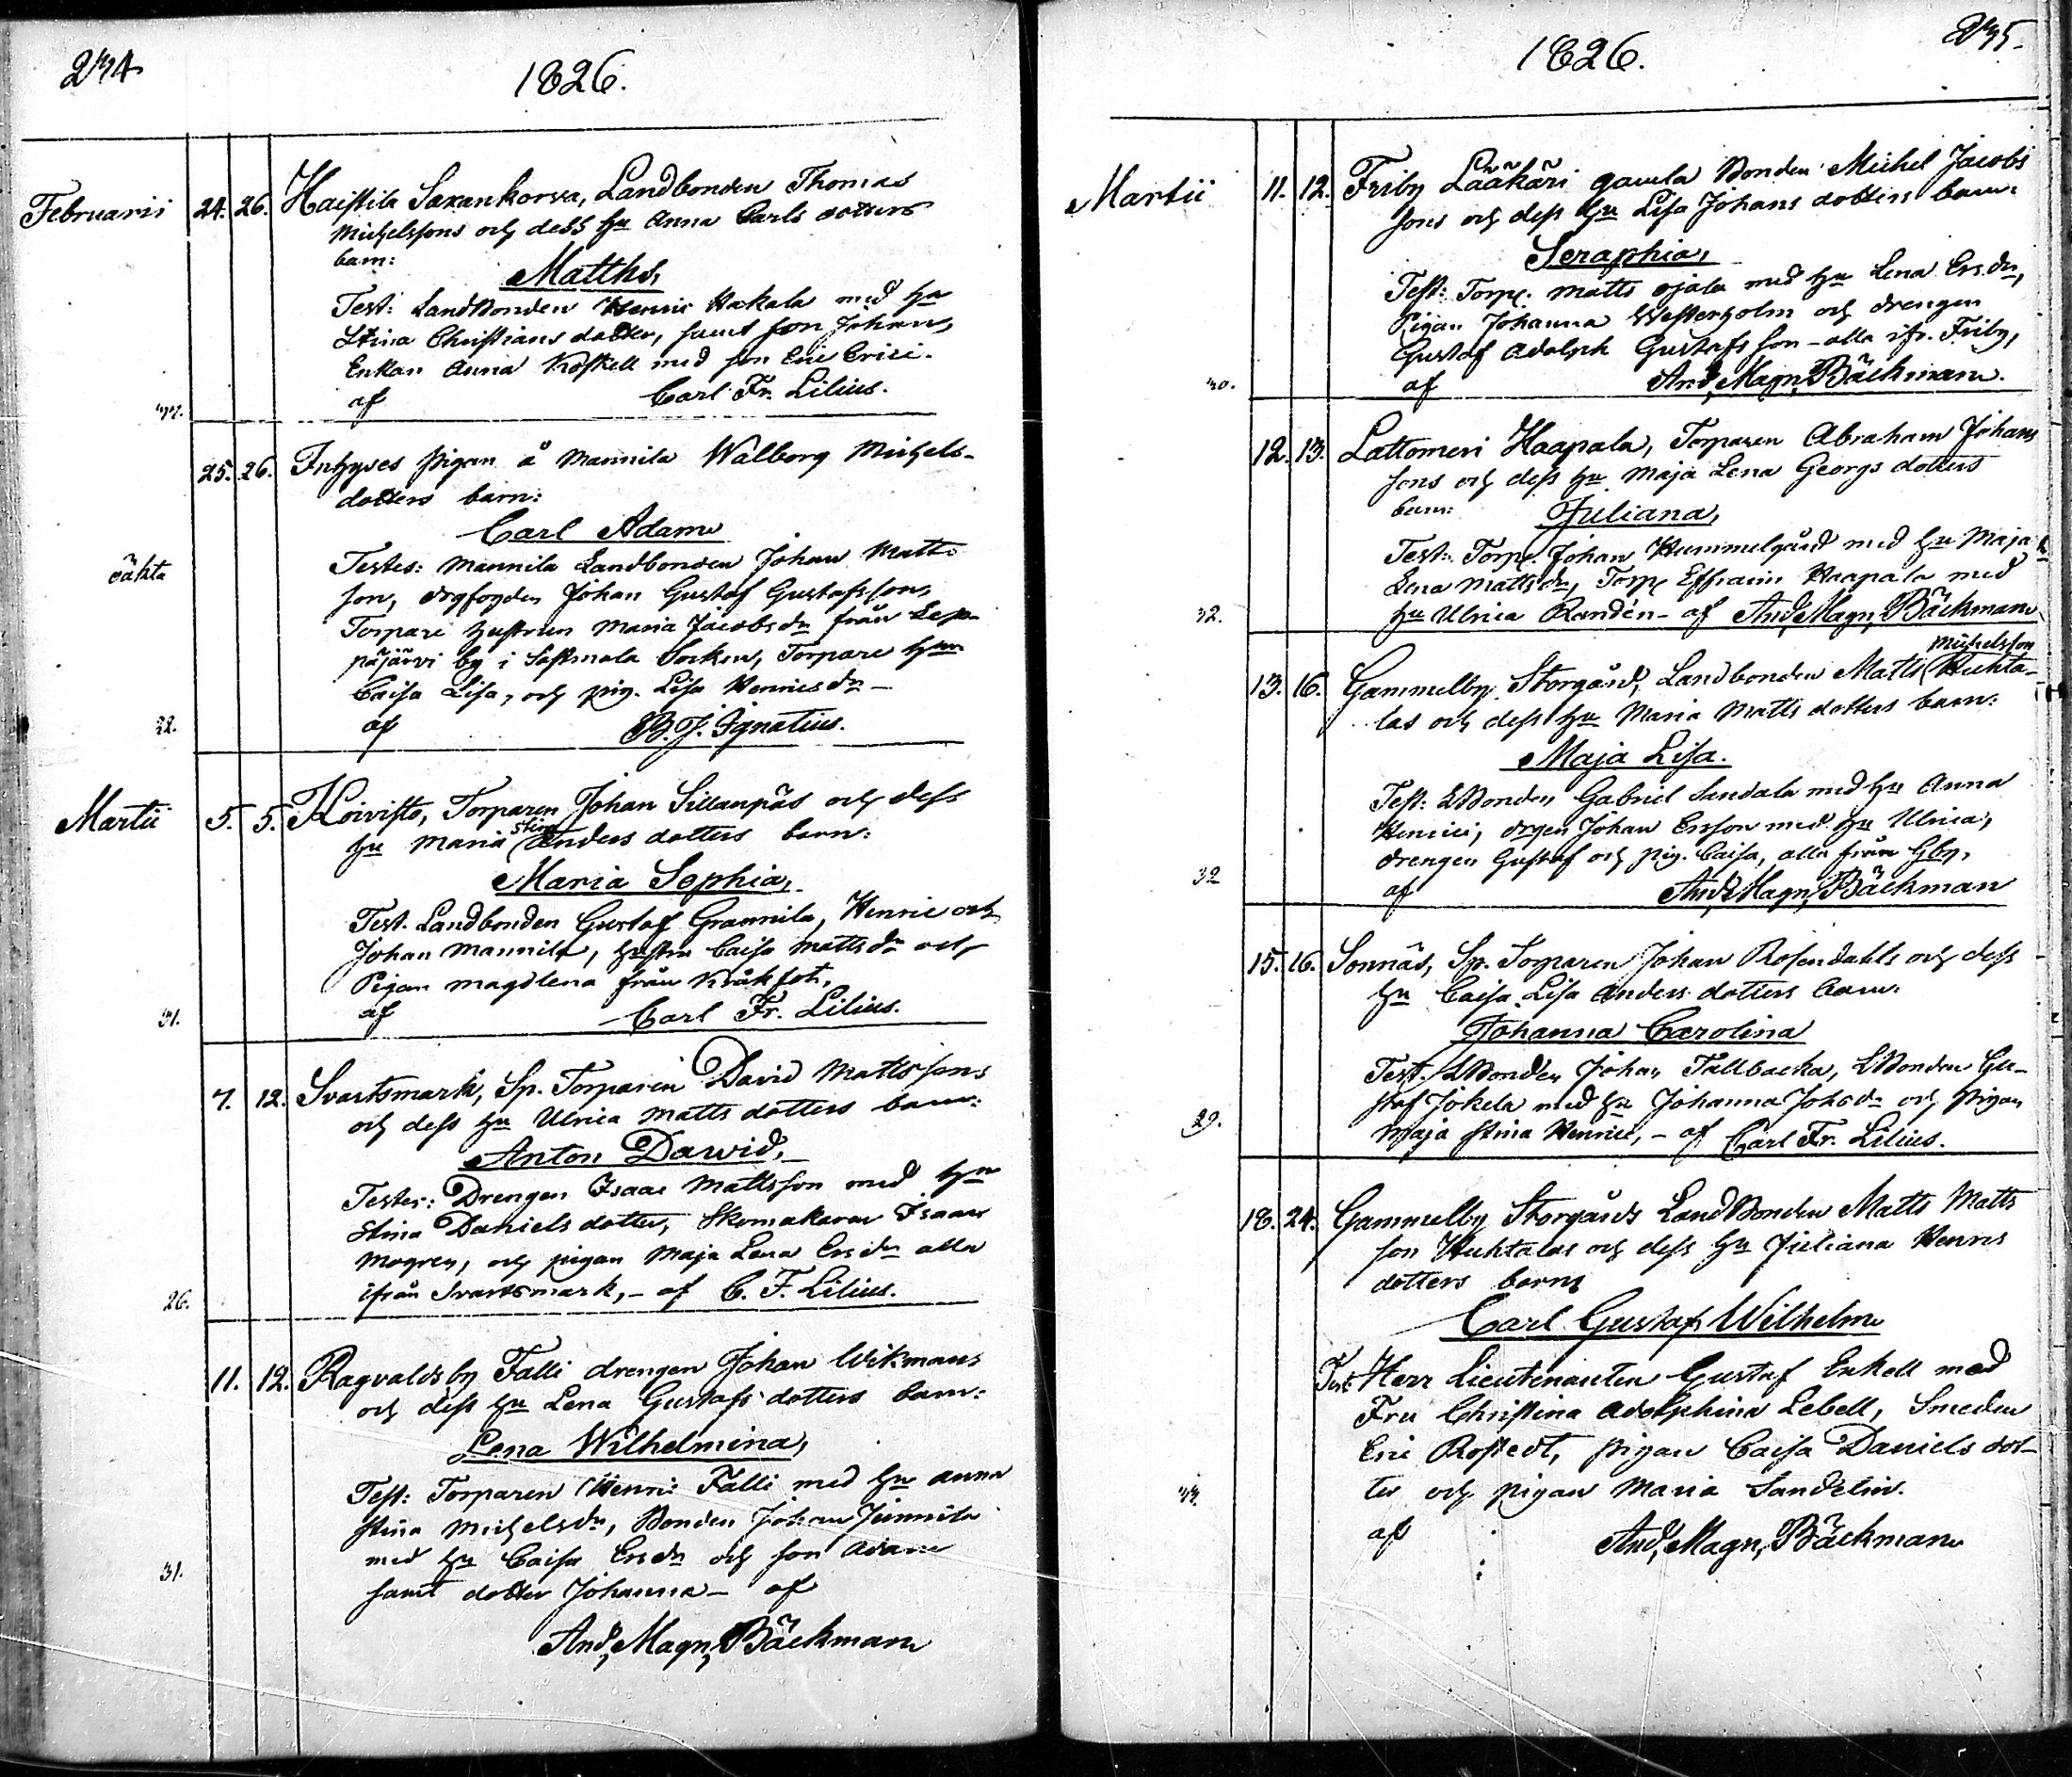 274
1826.
Februarii 24. 26. Haistila Saxankorva, Landbonden Thomas
Michelssons och dess hu Anna Carls dotters
barn:
Matths,
Test: Landbonden Henric Hakala med hu
Stina Christians dotter, samt son Johan,
Enkan Anna Koskell med son Eric Erici.
af Carl Fr. Lilius.
25. 26. Inhyses pigan å Mannila Walborg Michels-
dotters barn:
Carl Adam
oäkta
Testes: Mannila Landbonden Johan Matts
son, Johan Gustaf Gustafsson,
Torpare hustrun Maria Jacobsdr från Lep-
päjärvi by i Sastmola Socken, Torpare hun
Caisa Lisa, och pig. Lisa Henricsdr -
22. af B. J. Ignatius.
Martii 5. 5. Koivisto, Torparen Johan Sillanpäs och dess
Stina
hu Maria Anders dotters barn:
Maria Sophia,
Test. Landbonden Gustaf Grannila, Henric och
Johan Mannila, hustru Caisa Mattsdr och
Pigan Magdlena från Kråkfot,
31. af Carl Fr. Lilius.
7. 12. Svartsmark, Sp. Torparen David Mattssons
och dess hu Ulrica Matts dotters barn:
Anton Dawid,
Testes: Drengen Isaac Mattsson med hu
Stina Daniels dotter, Skomakaren Isaac
Mogren, och pigan Maja Lena Ersdr alla
26. ifrån Svartsmark, - af C. F. Lilius.
11. 12. Ragvaldsby Falli drengen Johan Wikmans
och dess hu Lena Gustafs dotters barn:
Lena Wilhelmina,
Test: Torparen Henric Falli med hu Anna
Stina Michelsdr, Bonden Johan Jinnila
med hu Caisa Ersdr och son Adam
31. samt dotter Johanna - af
And, Magn, Bäckman
275.
1826.
Martii 11. 12. Friby Lääkäri gamla Bonden Michel Jacobs
sons och dess hu Lisa Johans dotters barn:
Seraphia,
Test: Torp. Matts Ojala med hu Lena Ersdr,
Pigan Johanna Westerholm och drengen
Gustaf Adolph Gustafs son - alla ifr. Friby,
40. af And, Magn, Bäckman.
12. 13. Lattomeri Haapala, Torparen Abraham Johans
sons och dess hu Maja Lena Georgs dotters
barn: Juliana,
Test: Torp. Johan Hummelgård med hu Maja
Lena Mattsdr, Torp Efraim Haapala med
32. hu Ulrica Randén - af And, Magn, Bäckman
Michelsson
13. 16. Gammelby Storgård, Landbonden Matts Huhta-
las och dess hu Maria Matts dotters barn:
Maja Lisa.
Test: LBonden Gabriel Sandala med hu Anna
Henrici, Johan Ersson med hu Ulrica,
drengen Gustaf och pig. Caisa, alla från Gby,
32 af And, Magn, Bäckman
15. 16. Sonnäs, Sp. Torparen Johan Rosendahls och dess
hu Caisa Lisa Anders dotters barn:
Johanna Carolina
Test. LBonden Johan Tallbacka, LBonden Gu-
staf Jokela med hu Johanna Johsdr och Pigan
29. Maja Stina Henrici, - af Carl Fr. Lilius.
18. 24. Gammelby Storgårds Landbonden Matts Matts
son Huhtalas och dess hu Juliana Henrics
dotters barn
Carl Gustaf Wilhelm
Test Herr Lieutenanten Gustaf Enkell med
Fru Christina Adolphina Lebell, Smeden
Eric Rostedt, pigan Caisa Daniels dot-
ter och pigan Maria Sandelin.
af And, Magn, Bäckman